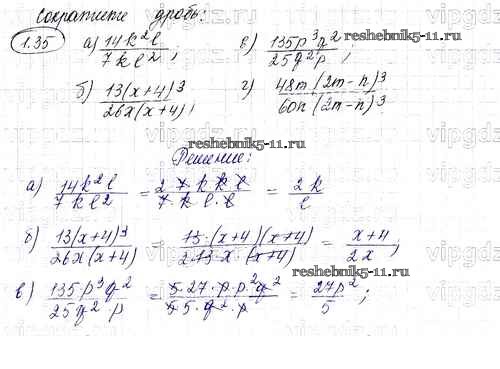 Сократите дробь:
1.35 а) 14k²l / 7kl² ; в) 135p³q² / 25q²p ;
б) 13(x+4)³ / 26x(x+4) ; г) 48m(2m-n)³ / 60n(2m-n)³
Решение:
а) 14k²l / 7kl² = 2·7·k·k·l / 7·k·l·l = 2k / l
б) 13(x+4)³ / 26x(x+4) = 13·(x+4)(x+4) / 2·13·x·(x+4) = x+4 / 2x ;
в) 135p³q² / 25q²·p = 5·27·p·p²q² / 5·5·q²·p = 27p² / 5 ;
reshebnik5-11.ru
reshebnik5-11.ru
reshebnik5-11.ru
reshebnik5-11.ru
vipgdz